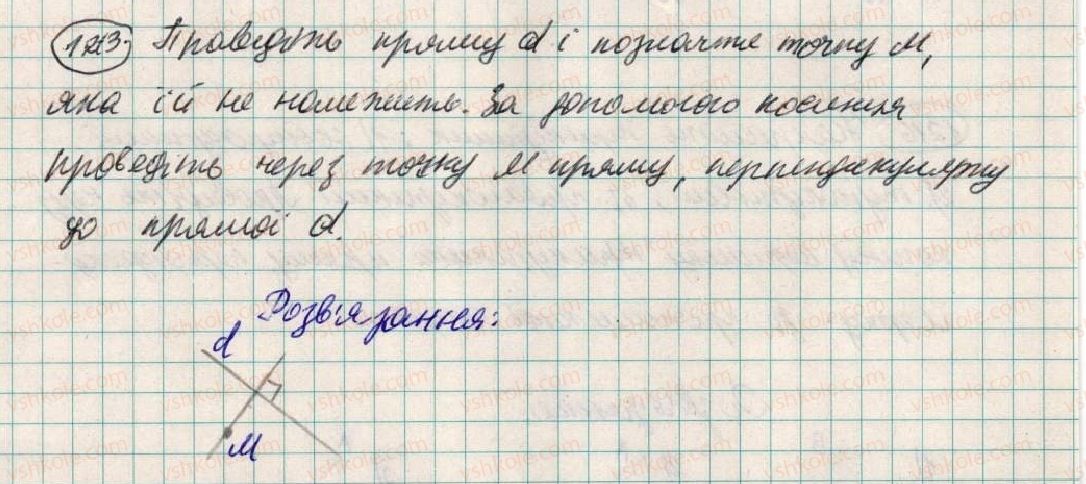 1213. Проведіть пряму d і позначте точку М,
яка їй не належить. За допомогою косинця
проведіть через точку М пряму, перпендикулярну
до прямої d.
Розв'язання:
d
М